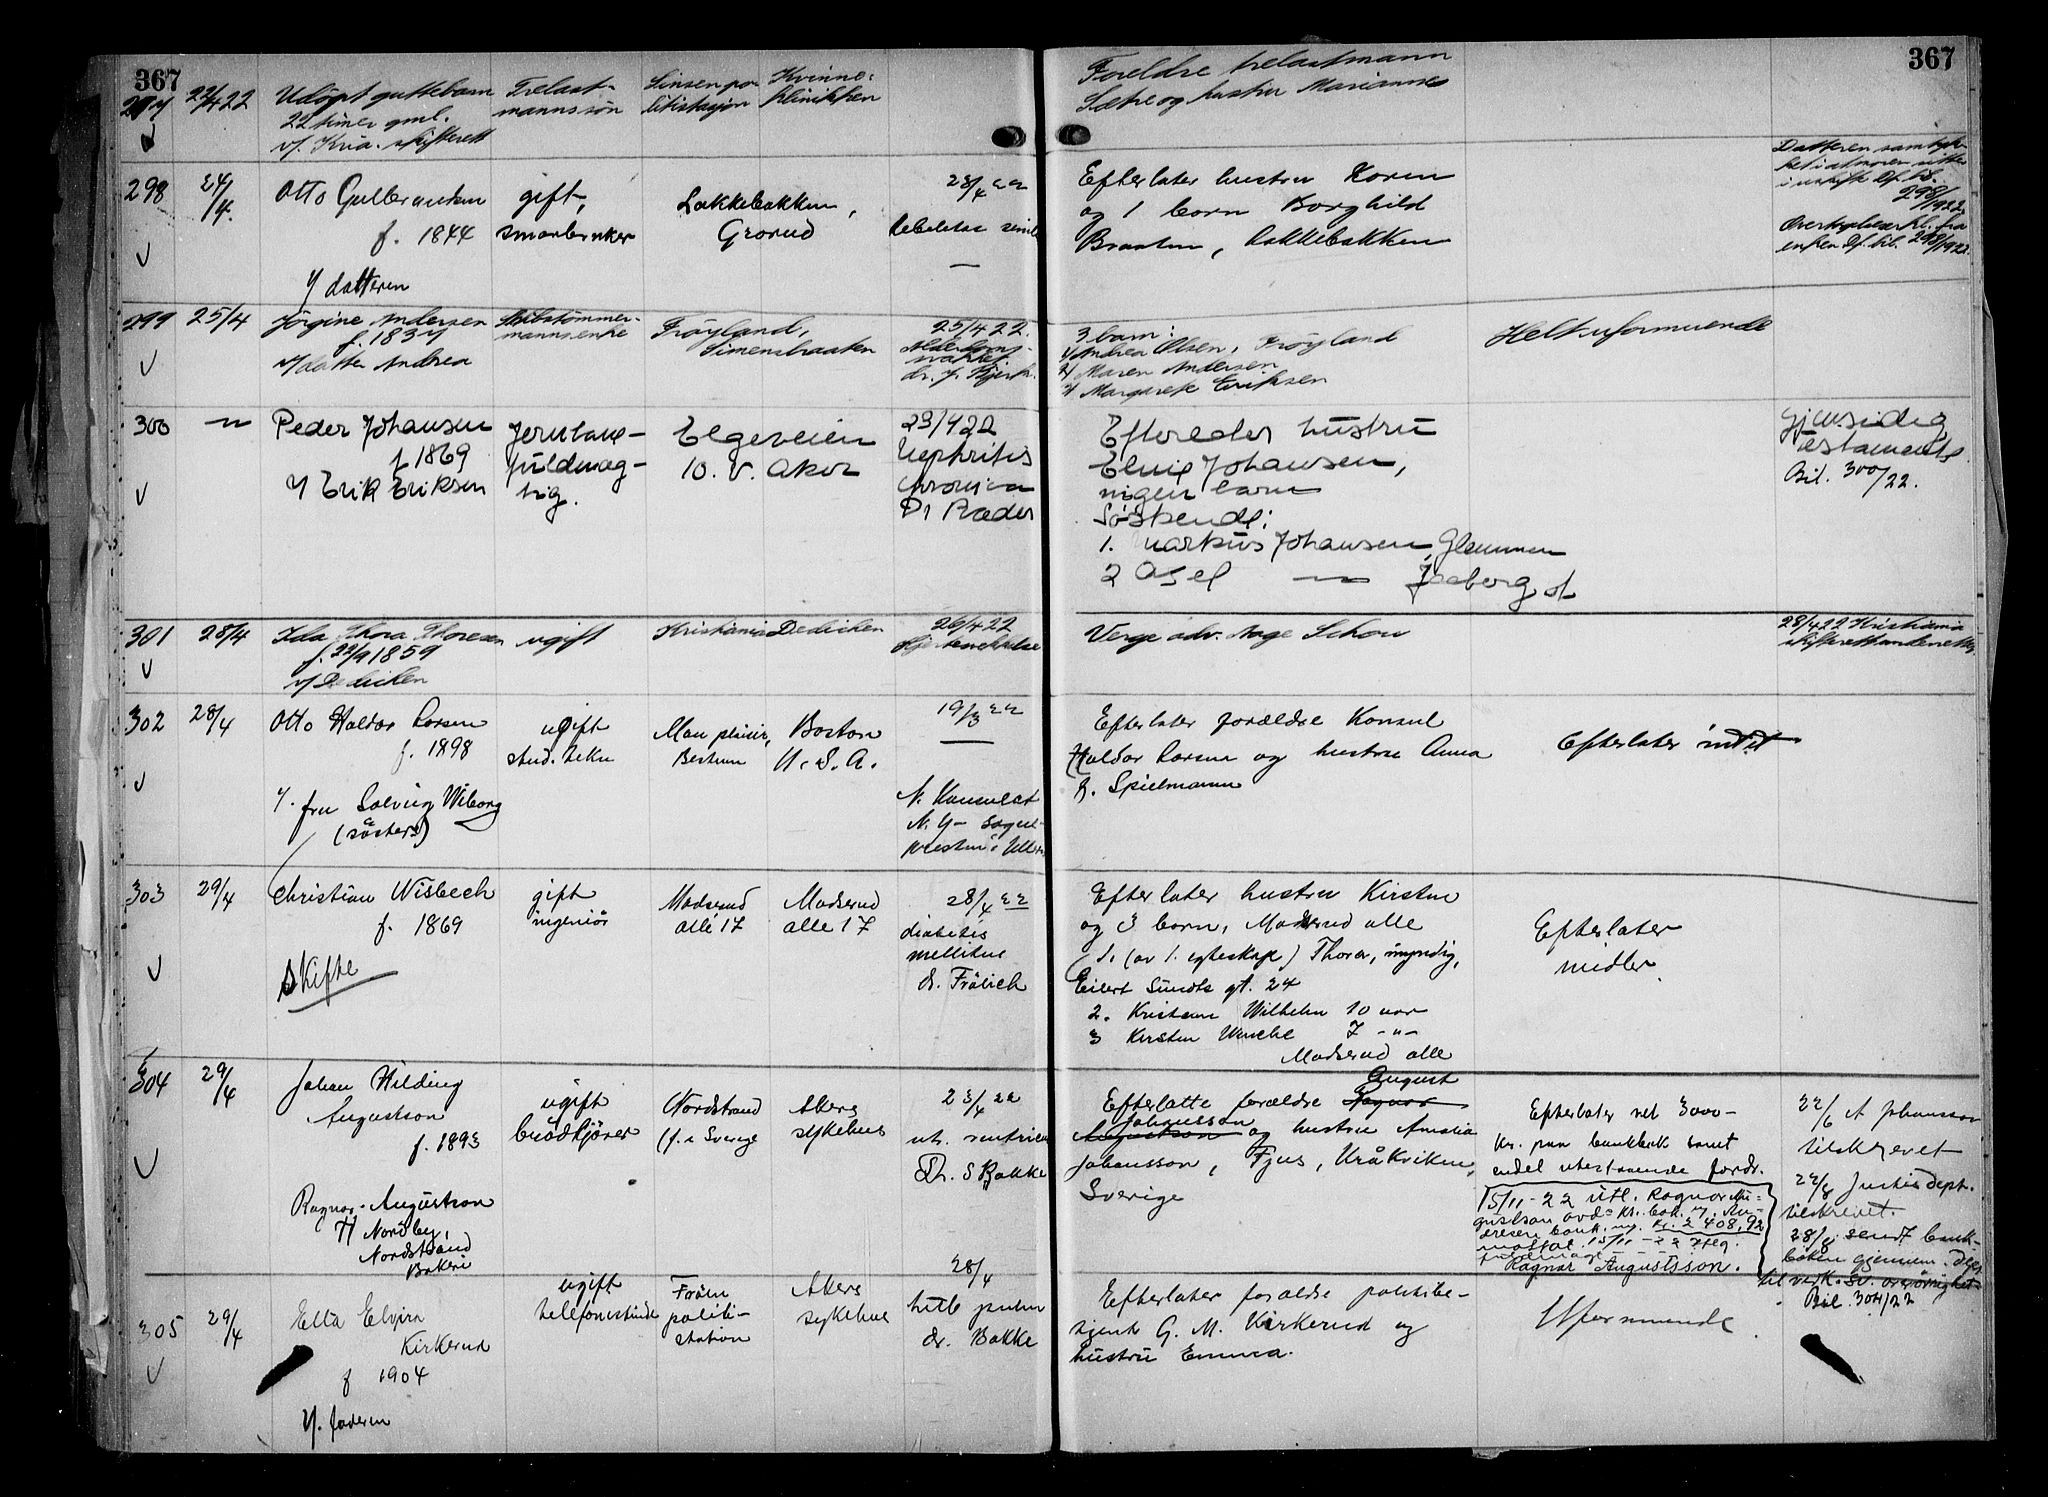 367
367
297
22/4 22
Udöpt guttebarn
22 timer gml.
v/. Kria. skifterett
Trelast-
mannssön
Sinsen po-
litistasjon
Kvinne-
klinikken
Foreldre trelastmann
Sætre og hustru Marianne
298
24/4.
Otto Gulbrandsen
f. 1844
v/ datteren
gift,
smaabruker
Lakkebakken,
Grorud
23/4 22
debelitas senil
Efterlater hustru Karen
og 1 barn Borghild
Braaten, Lakkebakken
Datteren samtyk-
i uskifte Df. bil.
298/1922
enken Df. bil. 298/1922.
299
25/4
Jörgine Andersen
f. 1837
v/datter Andrea
Skibstömmer-
mannsenke
Fröyland,
Simensbraaten
25/4 22.
3 barn:
1/ Andrea Olsen, Fröyland
2/ Maren Andersen
3/ Margarete Eriksen
Helt uformuende
300
Peder Johansen
f 1869
v/ Erik Eriksen
fuldmæg-
tig.
Elgeveien
10. V. Aker
23/4 22
Nephritis
chronica
Dr Ræder
Efterlader hustru
Johansen,
ingen barn
Söskende:
1. Markus Johansen, Glemmen
2
Gjensidig
testamente
Bil. 300/22.
301
28/4
Ida Thora Thoresen
f. 22/9 1859
v/ Dedichen
ugift
Kristiania
Dedichen
26/4 22
Hjertelammelse
Verge adv. Aage Schou
28/4 22 Kristiania
302
28/4
Otto Haldor Larsen
f. 1898
v. fru Solveig Wiborg
(söster)
ugift
stud. tekn
Mon plaisir,
Bestum
Boston
U. S. A.
19/3 22
N. Konsulat
N. Y- Sogne-
presten i Ullern
Efterlater forældre Konsul
Haldor Larsen og hustru Anna
f. Spielmann
Efterlater intet
303
29/4
Christian Wisbech
f. 1869
Skifte
gift
ingeniör
Madserud
allé 17
Madserud
alle 17
28/4 22
diabetes
mellitus
dr. Frölich
Efterlater hustru Kirsten
og 3 barn, Madserud alle
1. (av 1. egteskap) Thora, myndig,
Eilert Sundts gt. 24
2. Kristian Wilhelm 10 aar
3 Kirsten Wenche 7 -"-
Madserud alle
Efterlater
midler
304
29/4
Johan Hilding
Augustson
f. 1893
Ragnar Augustson
Nordby,
Nordstrand
Bakeri
ugift
brödkjörer
Nordstrand
(f. i Sverige
Akers
sykehus
23/4 22
Dr. S Bakke
August
Efterlatte forældre Ragnar
Johansson
Augustson og hustru Amalia
Johansson, Fjus, Uråkviken,
Sverige
Efterlater vel 3000-
kr. paa bankbok samt
endel utestaaende fordr.
15/11-22 utl. Ragnar Au-
gustson avds kr. bok. m. An-
dresen bank. m. Kr. 2 408,92
mottat. 15/11-22 iflg.
fuldmagt
Ragnar Augustsson.
22/6 A Johansson
tilskrevet
22/8 Justisdept.
tilskrevet.
28/8 sendt bank-
boken gjennem. Dept
til svensk. øvrighet
Bil. 304/22
305
29/4
Etta Elvira
Kirkerud
f 1904
v/. faderen
ugift
telefonistinde
Frøen
politi-
station
Akers
sykehus
28/4
dr. Bakke
Efterlater forældre politibe-
tjent G. M. Kirkerud og
hustru Emma.
Uformuende